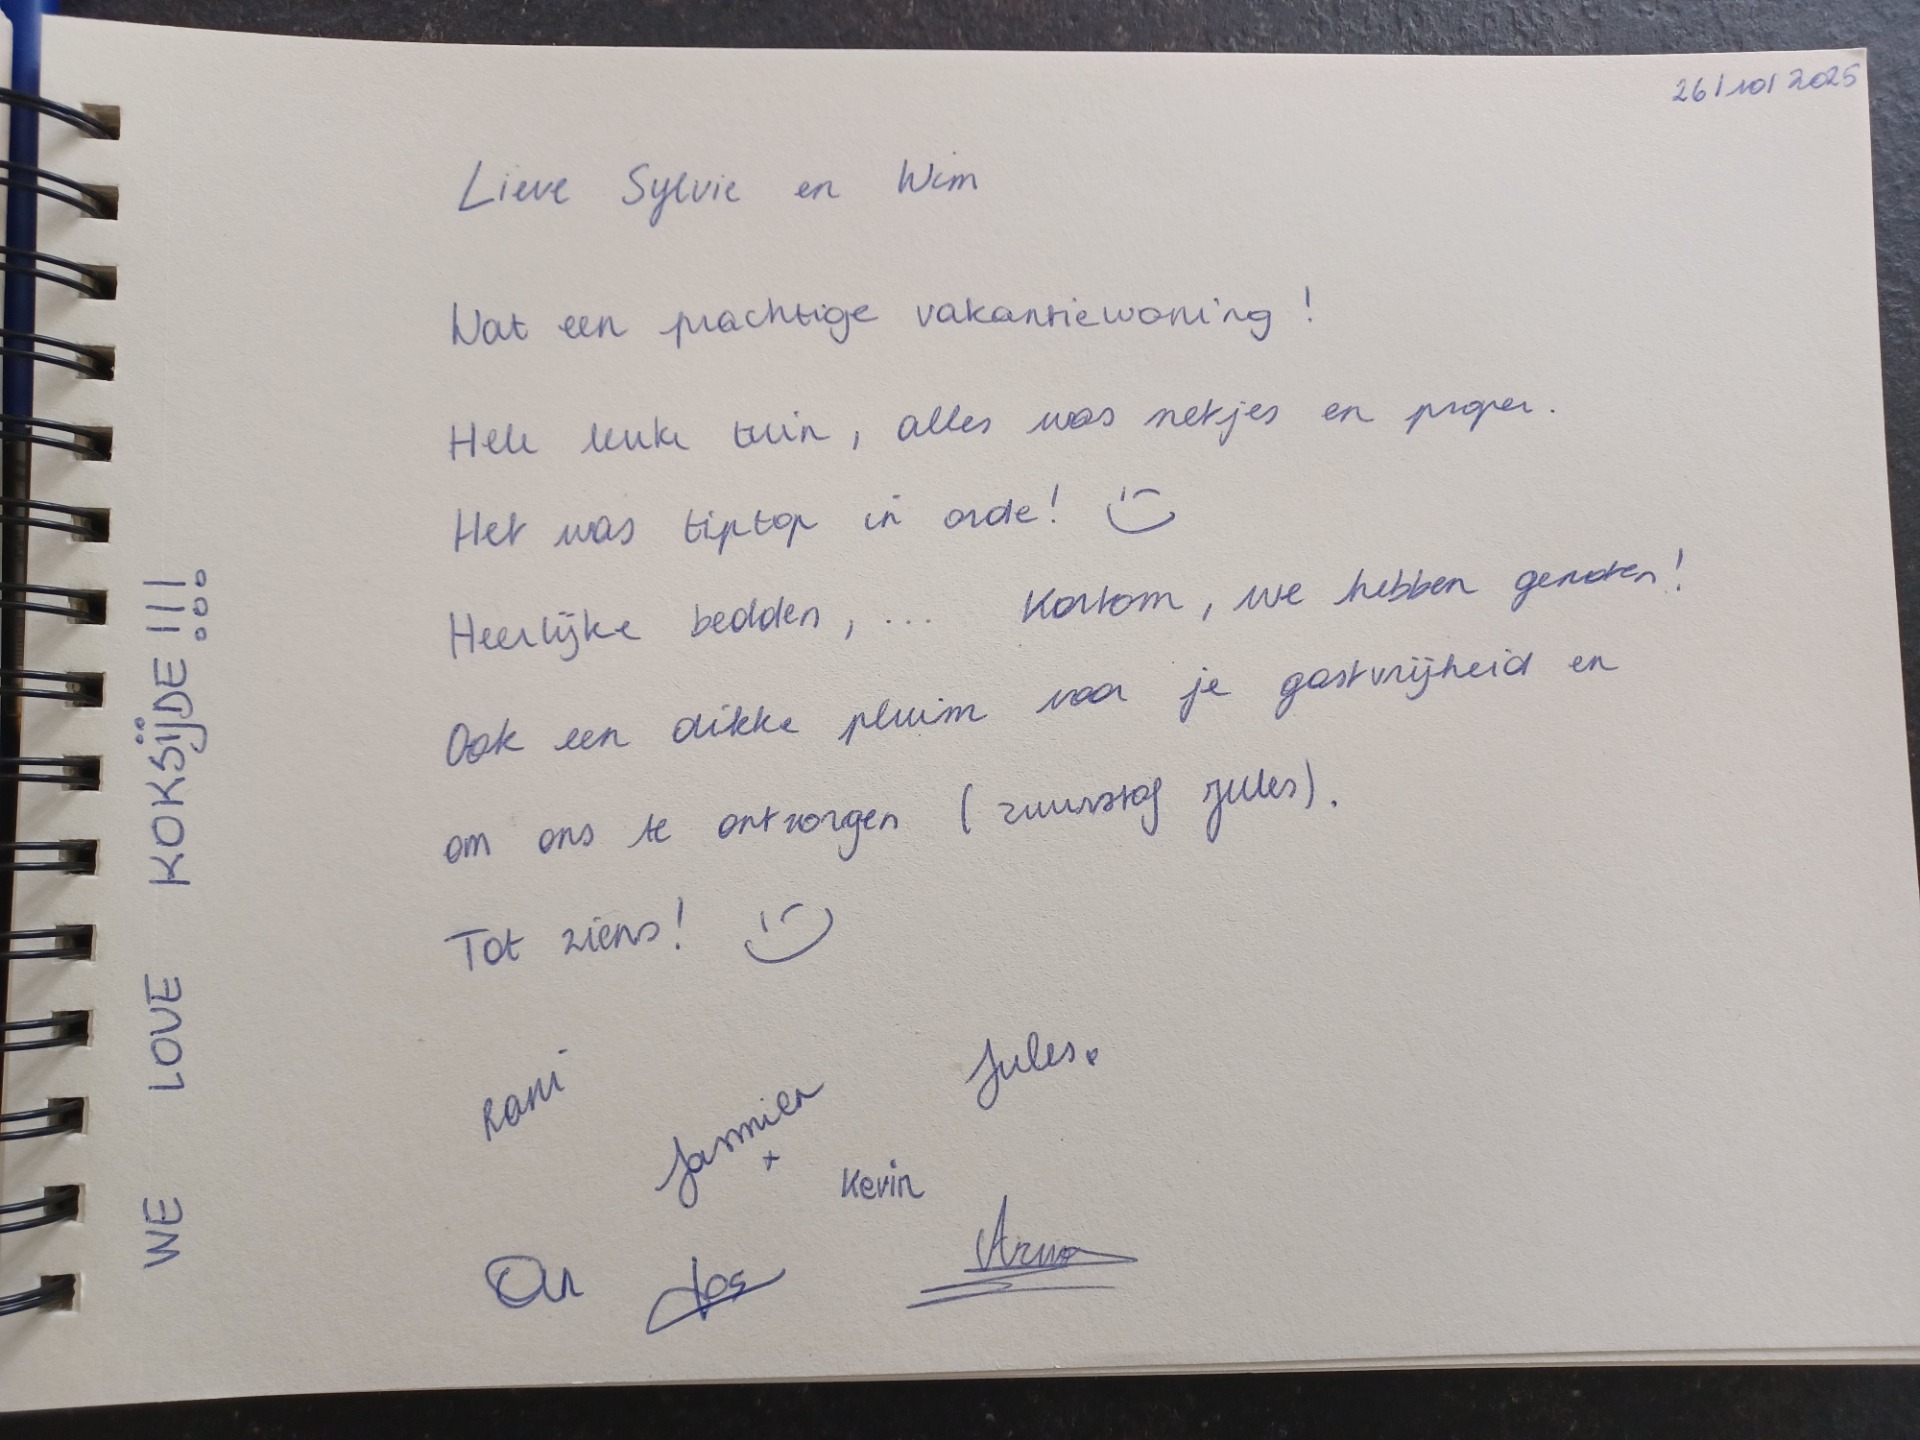 26/10/2025
Lieve Sylvie en Wim
Wat een prachtige vakantiewoning!
Hele leuke tuin, alles was netjes en proper.
Het was tiptop in orde!
Heerlijke bedden, ... Kortom, we hebben genoten!
Ook een dikke pluim voor je gastvrijheid en
om ons te ontzorgen (zuurstof Jules).
Tot ziens!
Rani
Jules.
Jasmien
+
Kevin
An
Jos
Arno
WE LOVE KOKSIJDE!!!